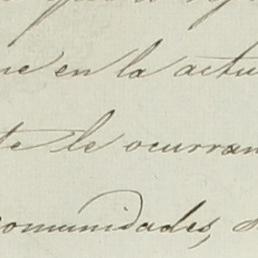 ne en la actu
te le ocurran
comunidades,